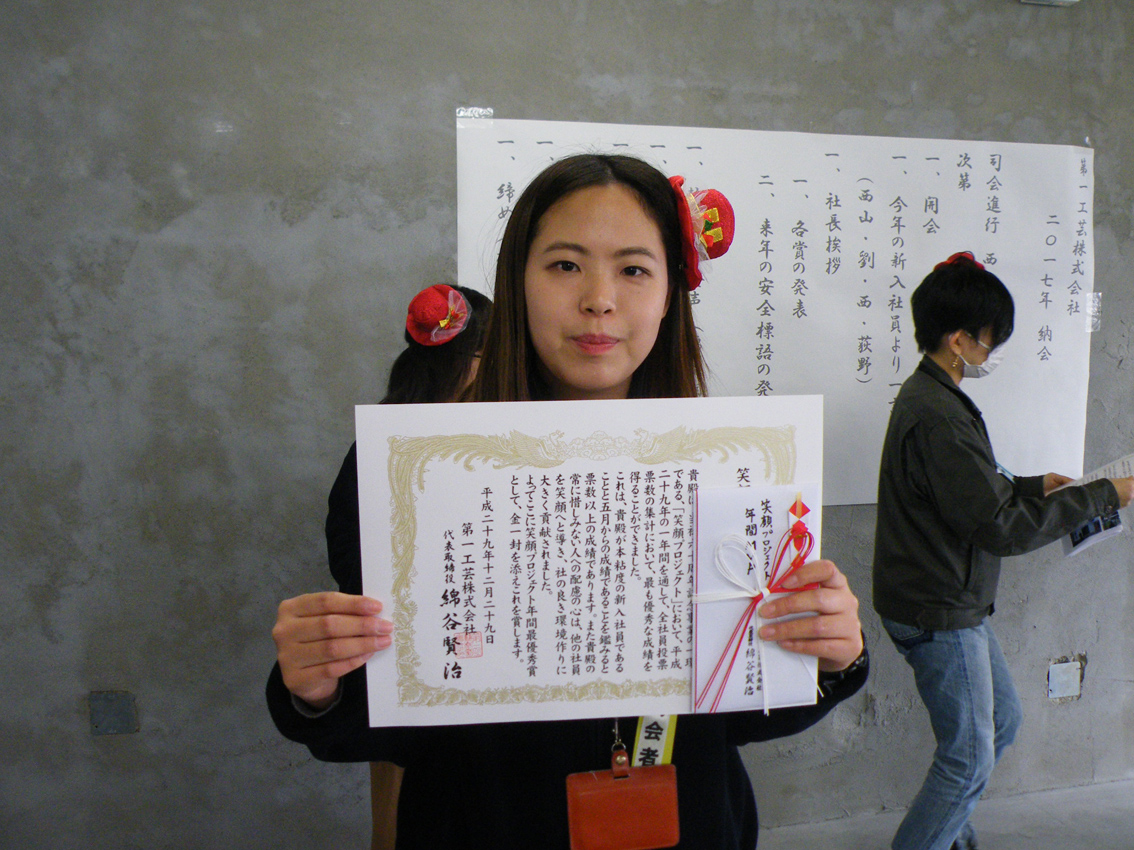 第一工芸株式会社
二〇一七年 納会
司会進行 西
次第
一、開会
一、今年の新入社員より一
（西山・劉・西・荻野）
一、社長挨拶
一、各賞の発表
二、来年の安全標語の発
一、
一、
一、
一、締め
笑
である、「笑顔プロジェクト」において、平成
二十九年の一年間を通して、全社員投票
票数の集計において、最も優秀な成績を
得ることができました。
これは、貴殿が本粘度の新入社員である
ことと五月からの成績であることを鑑みると
票数以上の成績であります。また貴殿の
常に惜しみない人への配慮の心は、他の社員
を笑顔へと導き、社の良き環境作りに
大きく貢献されました。
よってここに笑顔プロジェクト年間最優秀賞
として、金一封を添えこれを賞します。
平成二十九年十二月二十九日
第一工芸株式会社
代表取締役 綿谷賢治
笑顔プロジェクト
年間
綿谷賢治
会者